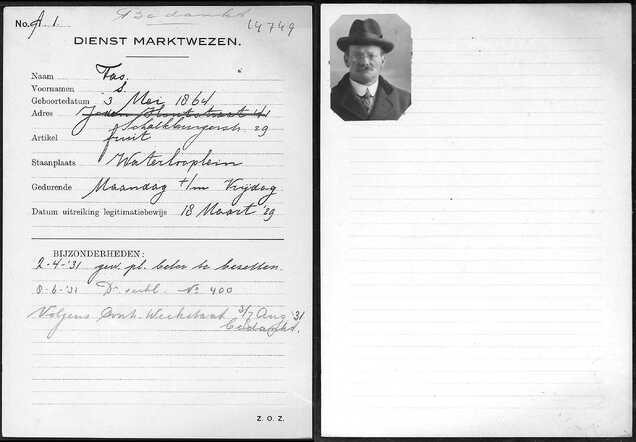 Bedankt
No. A. 1. 14749
DIENST MARKTWEZEN.
Naam Tas.
Voornamen S.
Geboortedatum 3 Mei 1864
Adres
Schalkburgerstr. 29
Artikel fruit
Staanplaats Waterlooplein
Gedurende Maandag t/m Vrijdag
Datum uitreiking legitimatiebewijs 18 Maart '29
BIJZONDERHEDEN:
2-4-'31 gew. pl. beter te bezetten.
8-6-'31 No 400
Volgens Contr. Weekstaat 3/7 Aug '31
bedankt.
Z. O. Z.